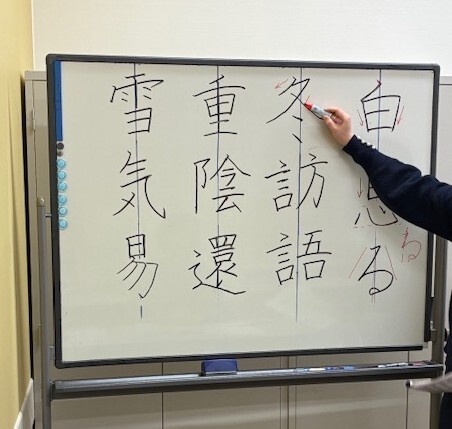 白る
る
冬訪語
重陰還
雪気易